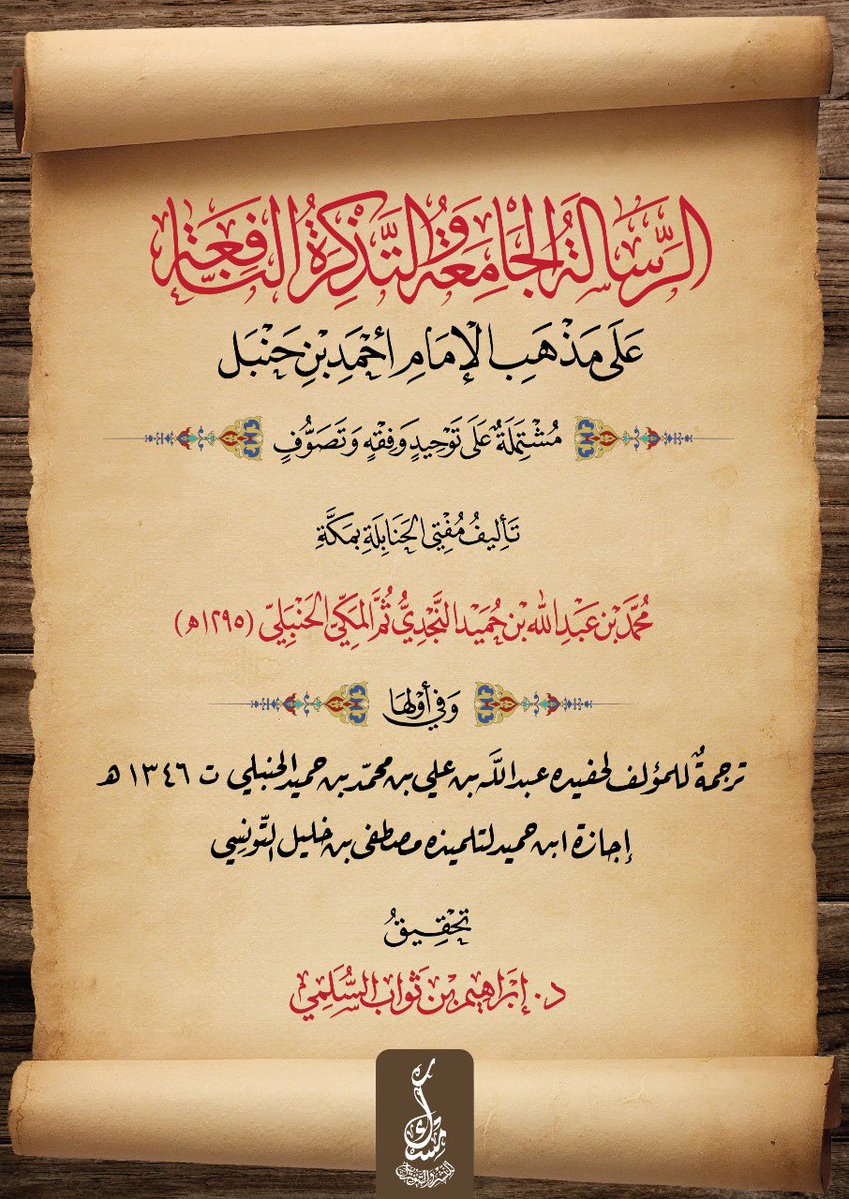 الرِّسَالَةُ الجَامِعَةُ وَالتَّذْكِرَةُ النَّافِعَةُ
عَلَى مَذْهَبِ الْإِمَامِ أَحْمَدَ بْنِ حَنْبَل
مُشْتَمِلَةٌ عَلَى تَوْحِيدٍ وَفِقْهٍ وَتَصَوُّفٍ
تَأْلِيفُ مُفْتِي الحَنَابِلَةِ بِمَكَّةَ
مُحَمَّد بْن عَبْدِ اللَّه بْن حُمَيْد النَّجْدِيُّ ثُمَّ المَكِّيّ الحَنْبَلِيّ (١٢٩٥هـ)
وَفِي أَوَّلِهَا
ترجمةٌ للمؤلف لحفيده عبدالله بن علي بن محمّد بن حميد الحنبلي ت ١٣٤٦هـ
إجازة ابن حميد لتلميذه مصطفى بن خليل التّونسِي
تَحْقِيقُ
د. إِبْرَاهِيم بْن ثَوَاب السُّلَمِي
مسك
للنشر والتوزيع